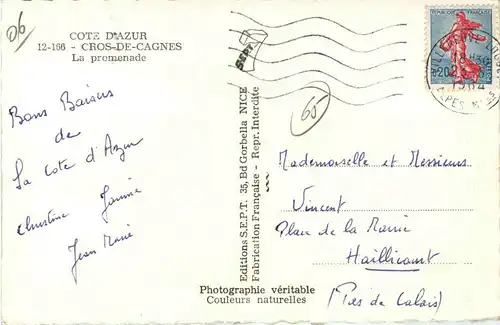 06
COTE D'AZUR
12-166 - CROS-DE-CAGNES
La promenade
Bons Baisers
de
La Cote d'Azur
Christine Jannie
Jean Marie
Editions S.E.P.T. 35, Bd Gorbella NICE
Fabrication Française - Repr. Interdite
SEPT
65
REPUBLIQUE FRANÇAISE
0,20
1964
Mademoiselle et Messieurs
Vincent
Place de la Mairie
Haillicourt
(Pas de Calais)
Photographie véritable
Couleurs naturelles